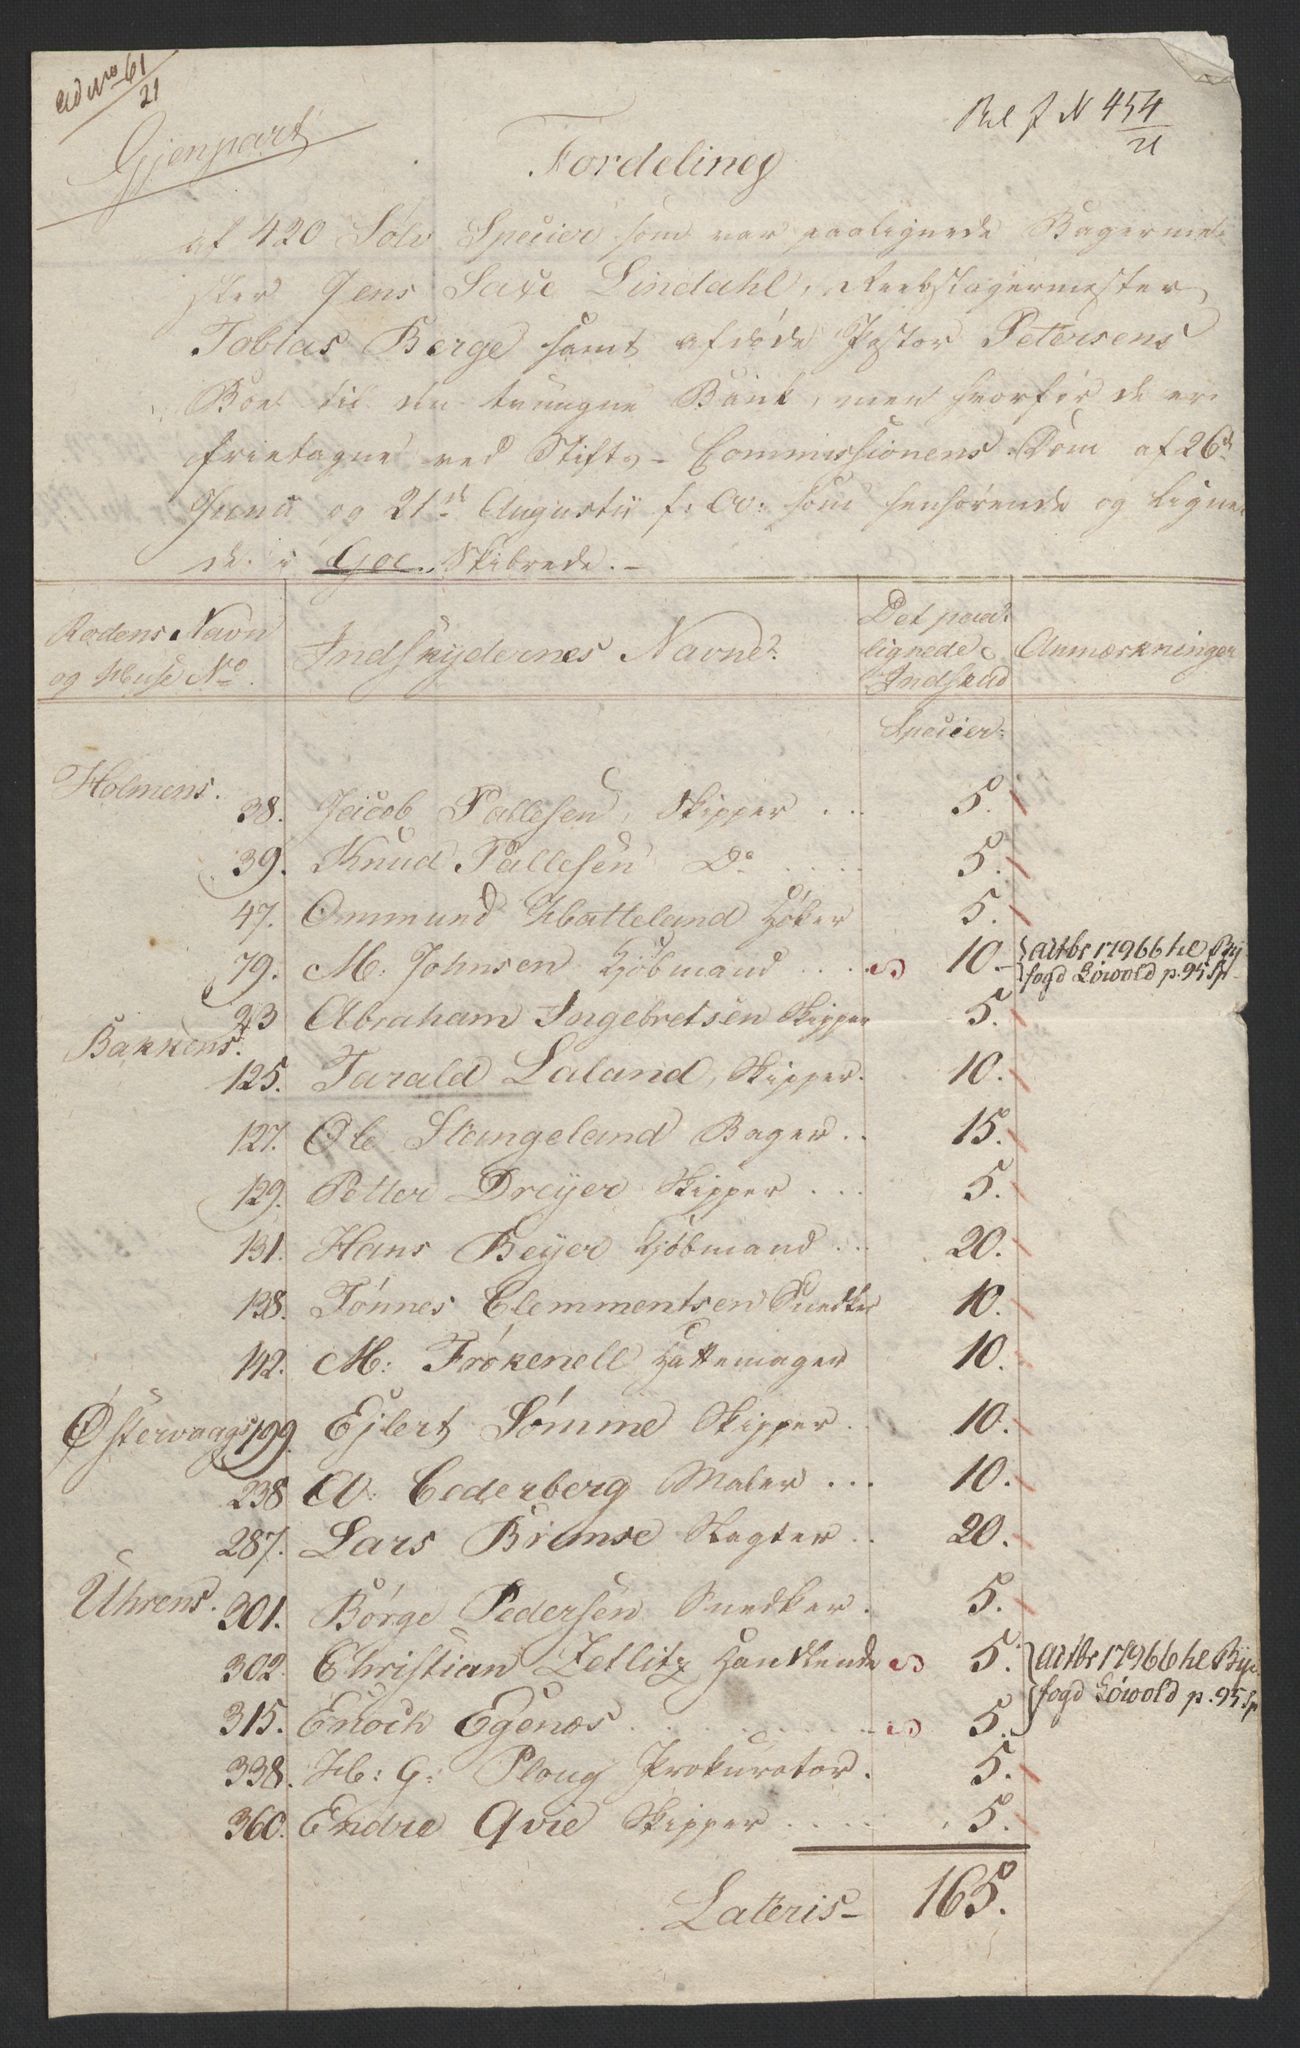 ad No 61/21
Gjenpart
Bil J N 454/21
Fordeling
af 420 Sølv Specier som var paalignede Bagerme-
ster Jens Saxe Lindahl, Reebslagermester
Tobias Berge samt afdøde Pastor Petersens
Boe til den tvungne Bank, men hvorfor de er
fritagne ved Stifts-Commissionens Dom af 26de
Junii og 21de Augustii f: A: som henhørende og ligne-
de i Goe Skibrede.-
Rodens Navn
og Huse No.
Indskydernes Navne
Det paa-
lignede
Indskud
Anmærkninger
Specier
Holmens.
38. Jacob Pallesen, Skipper . . . 5.
39. Knud Pallesen Do . . . . 5.
47. Ommund Hatteland Høker 5.
79. M: Johnsen Kjøbmand . . . . 10.- Attbr 179 66 til By-
fogd Løwold p. 95 Sp
Bakkens. 23 Abraham Ingebretsen Skipper 5.
125. Tarald Laland, Skipper. 10.
127. Ole Stangeland Bager . . 15.
129. Petter Dreyer Skipper . . . 5.
131. Hans Beyer Kjøbmand . . . 20.
138. Tönnes Clemmentsen Snedker 10.
142. M: Frökenell Hattemager 10.
Østervaags 199. Ejlert Sömme Skipper . 10.
238 A: Cederberg Maler . . . 10.
287. Lars Brimse Slagter . . 20.
Uhrens. 301. Börge Pedersen Snedker . 5.
302. Christian Zetlitz Handlende 5. Attbr 179 66 til By-
fogd Løwold p. 95 Sp
315. Enoch Egenæs . . . . . . 5.
338. H: G: Ploug Prokurator. 5.
360. Endre Qvie Skipper . . . . . 5.
Lateris- 165.